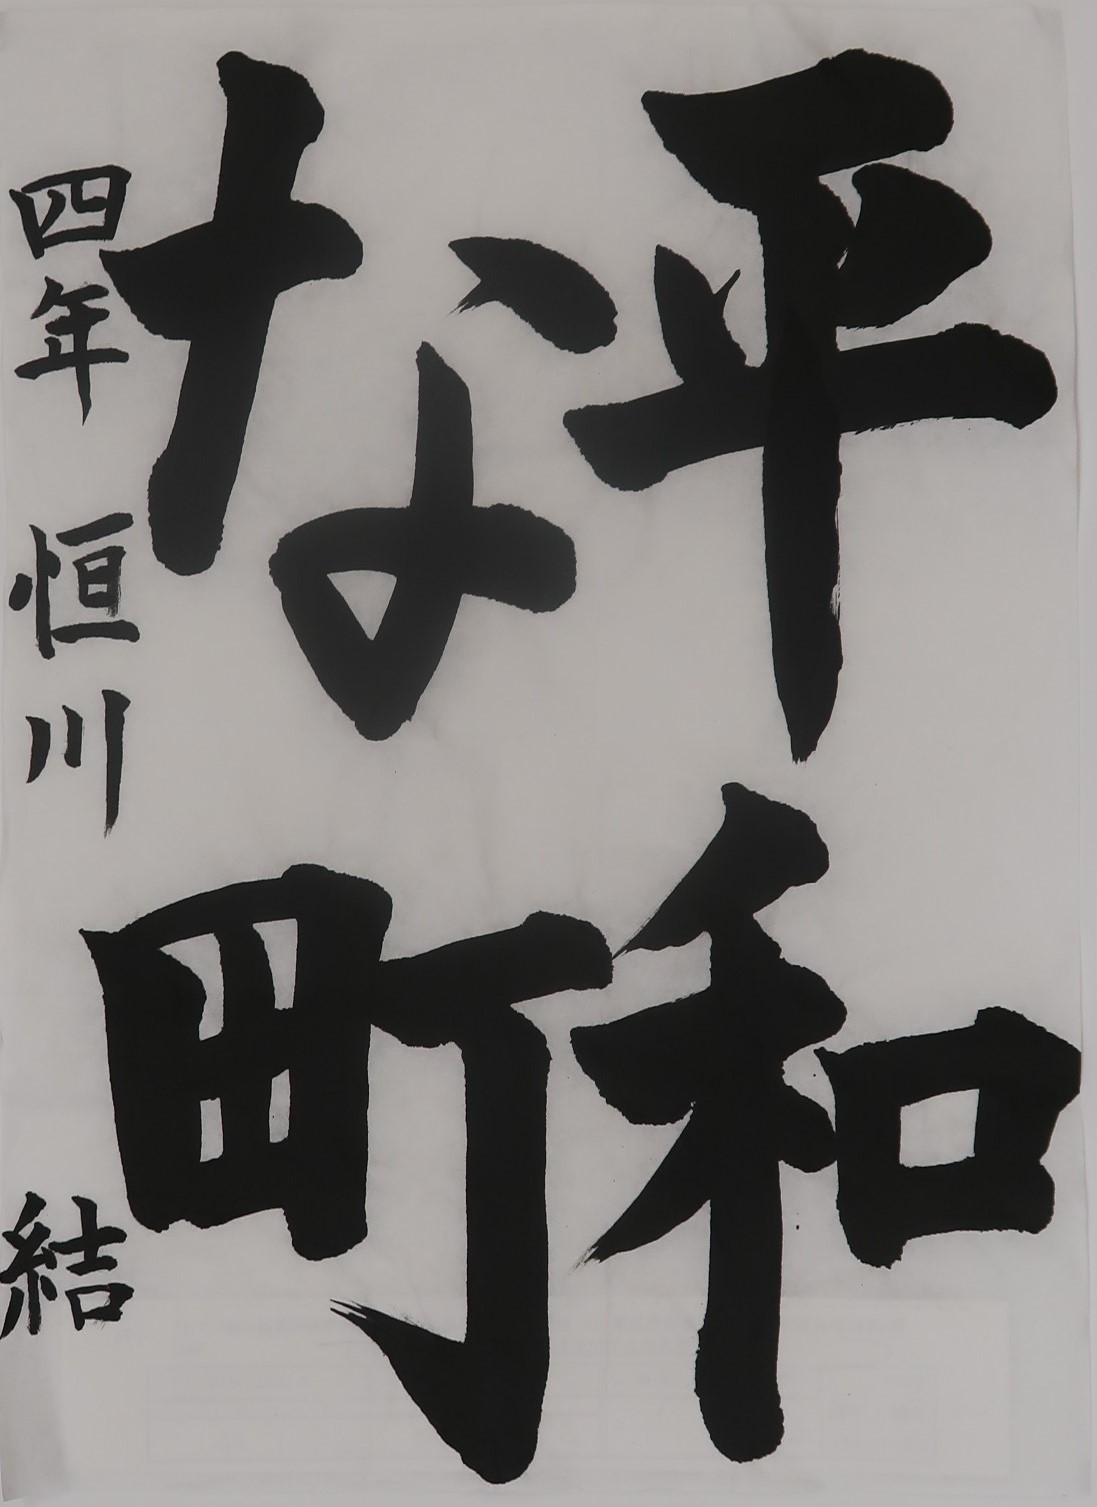 平和
な町
四年 恒川 結